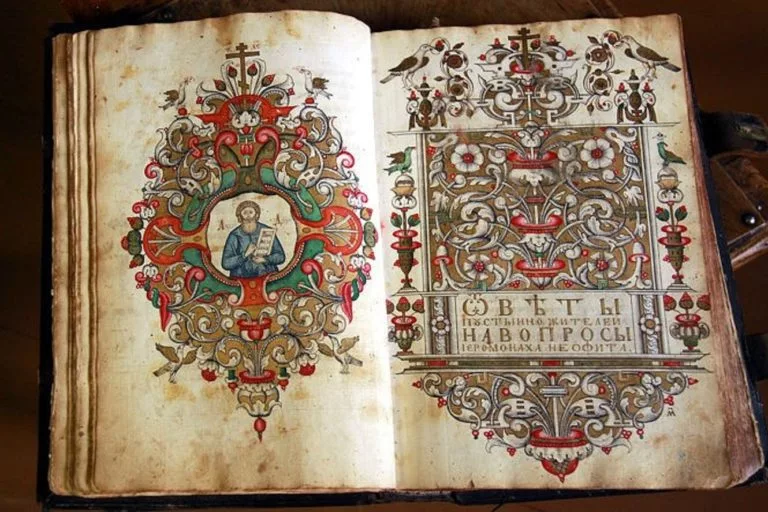 ѾВѢТЫ
ПУСТЫННОЖИТЕЛЕЙ
НАВОПРОСЫ
ІЕРОМОНАХА НЕОФИТА.